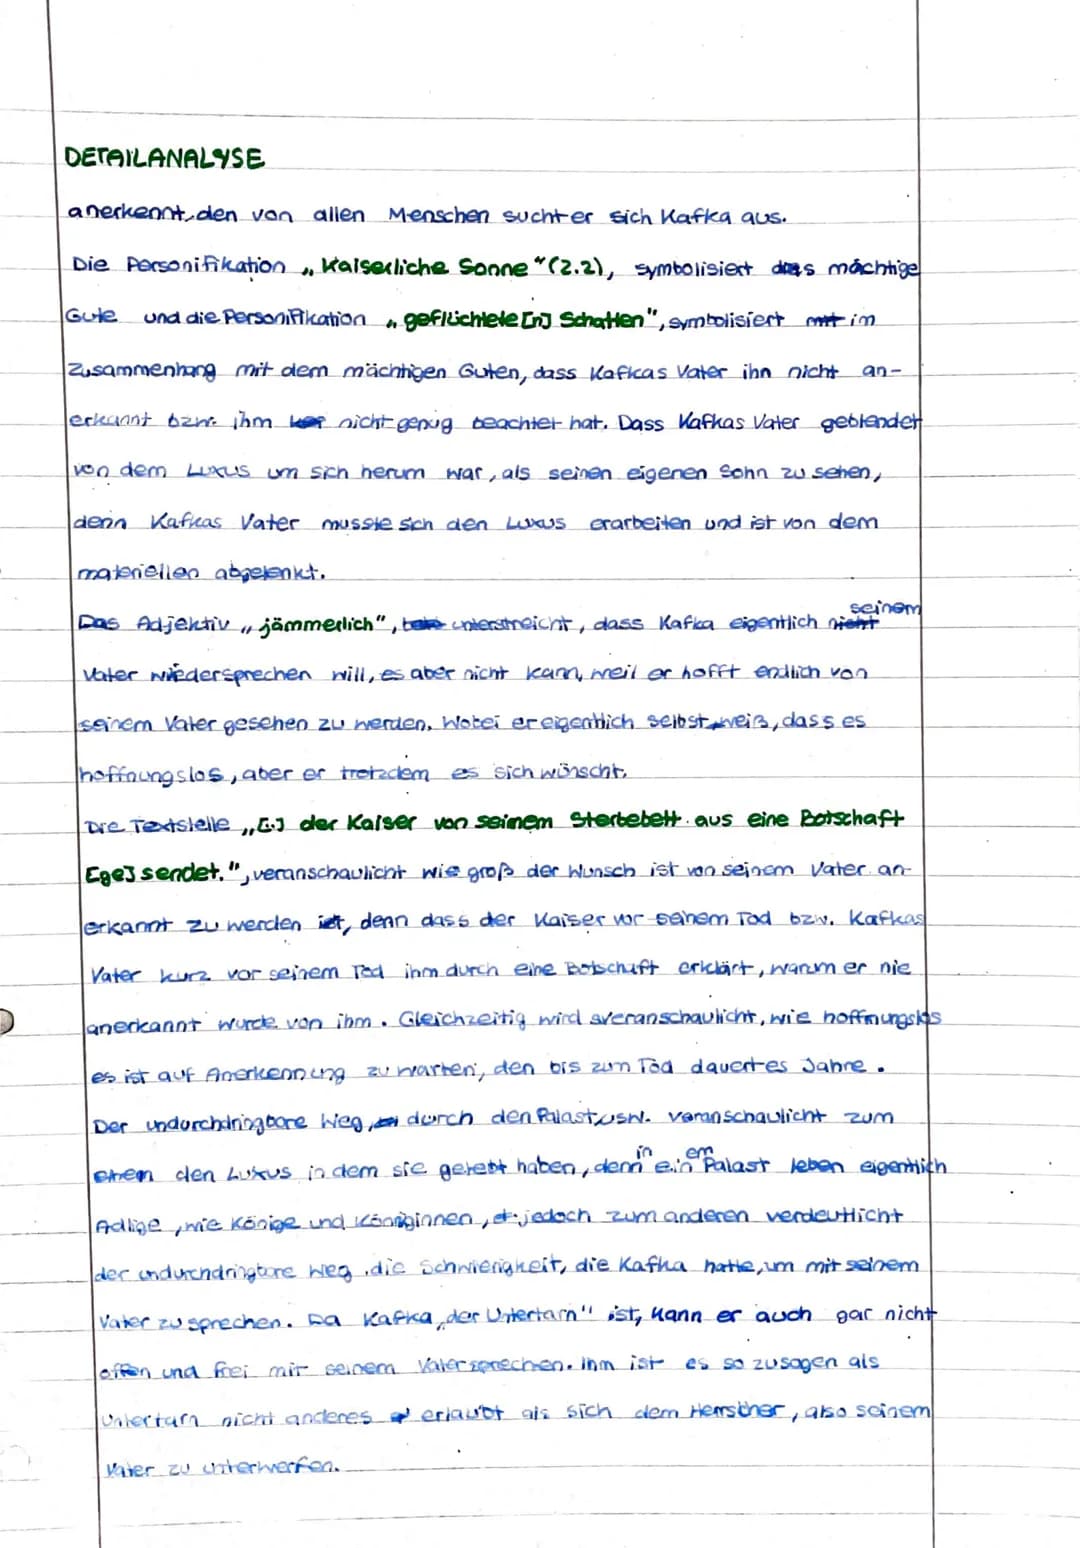 DETAILANALYSE
anerkennt, den von allen Menschen sucht er sich Kafka aus.
Die Personifikation „Kaiserliche Sonne" (Z.2), symbolisiert das mächtige
Gute und die Personifikation „geflüchtete[n] Schatten", symbolisiert im
Zusammenhang mit dem mächtigen Guten, dass Kafkas Vater ihn nicht an-
erkannt bzw. ihm nicht genug beachtet hat. Dass Kafkas Vater geblendet
von dem Luxus um sich herum war, als seinen eigenen Sohn zu sehen,
denn Kafkas Vater musste sich den Luxus erarbeiten und ist von dem
materiellen abgelenkt.
Das Adjektiv „jämmerlich", unterstreicht, dass Kafka eigentlich seinem
Vater wiedersprechen will, es aber nicht kann, weil er hofft endlich von
seinem Vater gesehen zu werden. Wobei er eigentlich selbst weiß, dass es
hoffnungslos, aber er trotzdem es sich wünscht.
Die Textstelle „[..] der Kaiser von seinem Sterbebett aus eine Botschaft
[ge]sendet.", veranschaulicht wie groß der Wunsch ist von seinem Vater an-
erkannt zu werden ist, denn dass der Kaiser vor seinem Tod bzw. Kafkas
Vater kurz vor seinem Tod ihm durch eine Botschaft erklärt, warum er nie
anerkannt wurde von ihm. Gleichzeitig wird veranschaulicht, wie hoffnungslos
es ist auf Anerkennung zu warten, den bis zum Tod dauert es Jahre.
Der undurchdringbare Weg, durch den Palast usw. veranschaulicht zum
einen den Luxus in dem sie gelebt haben, denn in einem Palast leben eigentlich
Adlige, wie Könige und Königinnen, jedoch zum anderen verdeutlicht
der undurchdringbare Weg die Schwierigkeit, die Kafka hatte, um mit seinem
Vater zu sprechen. Da Kafka „der Untertarn" ist, kann er auch gar nicht
offen und frei mit seinem Vater sprechen. Ihm ist es so zusagen als
Untertarn nicht anderes erlaubt als sich dem Herrscher, also seinem
Vater zu unterwerfen.